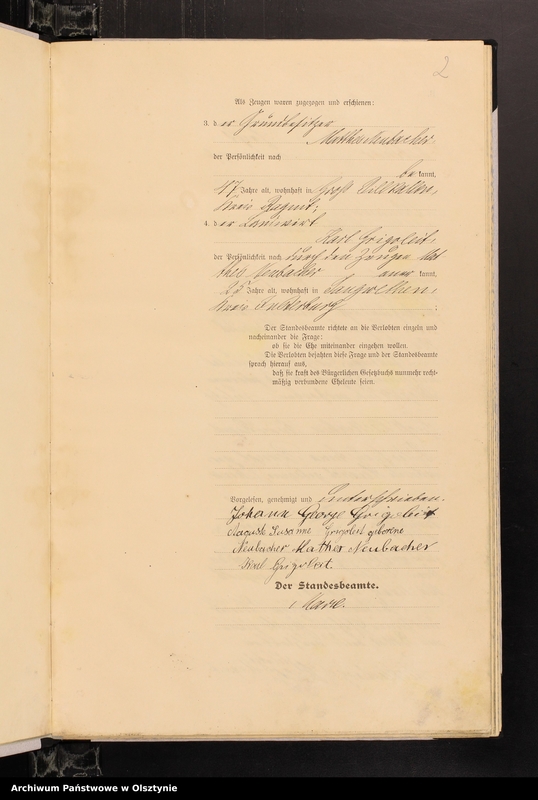 2
Als Zeugen waren zugezogen und erschienen:
3. der Grundbesitzer
Mathes Neubacher
der Persönlichkeit nach
be kannt,
47 Jahre alt, wohnhaft in Groß
Kreis Ragnit;
4. der Landwirt
Karl Grigoleit,
der Persönlichkeit nach durch den Zeugen Mat
thes Neubacher aner kannt,
25 Jahre alt, wohnhaft in
Kreis Insterburg ;
Der Standesbeamte richtete an die Verlobten einzeln und
nacheinander die Frage:
ob sie die Ehe miteinander eingehen wollen.
Die Verlobten bejahten diese Frage und der Standesbeamte
sprach hierauf aus,
daß sie kraft des Bürgerlichen Gesetzbuchs nunmehr recht-
mäßig verbundene Eheleute seien.
Vorgelesen, genehmigt und unterschrieben.
Johann George Grigoleit
Auguste Susanne Grigoleit geborene
Neubacher Mathes Neubacher
Karl Grigoleit.
Der Standesbeamte.
Archiwum Państwowe w Olsztynie